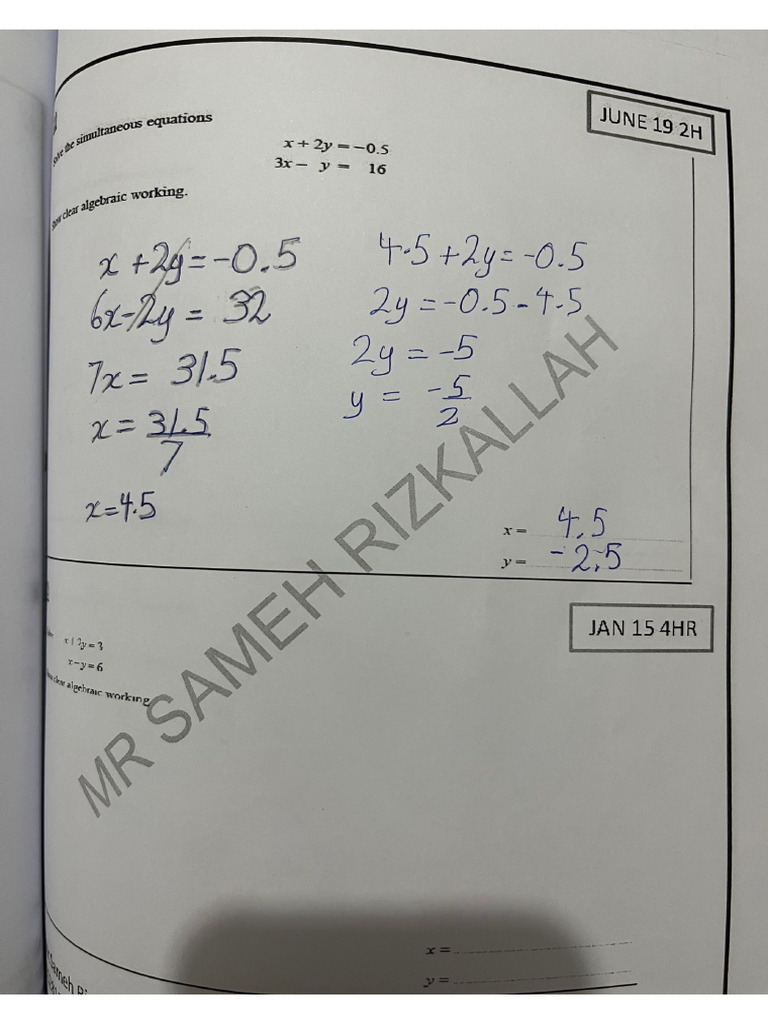 JUNE 19 2H
the simultaneous equations
x + 2y = −0.5
3x − y = 16
clear algebraic working.
x + 2y = -0.5
6x - 2y = 32
7x = 31.5
x = 31.5/7
x = 4.5
4.5 + 2y = -0.5
2y = -0.5 - 4.5
2y = -5
y = -5/2
x = 4.5
y = -2.5
MR SAMEH RIZKALLAH
JAN 15 4HR
x + 2y = 3
x − y = 6
clear algebraic working
x =
y =
Sameh